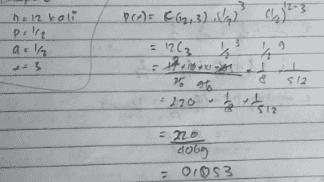 n = 12 kali
p = 1/2
q = 1/2
x = 3
P(x) = C(12, 3) . (1/2)^3 (1/2)^12-3
= 12C3 1/2^3 1/2^9
1/8 1/512
= 220 . 1/8 . 1/512
= 220/4069
= 0,053